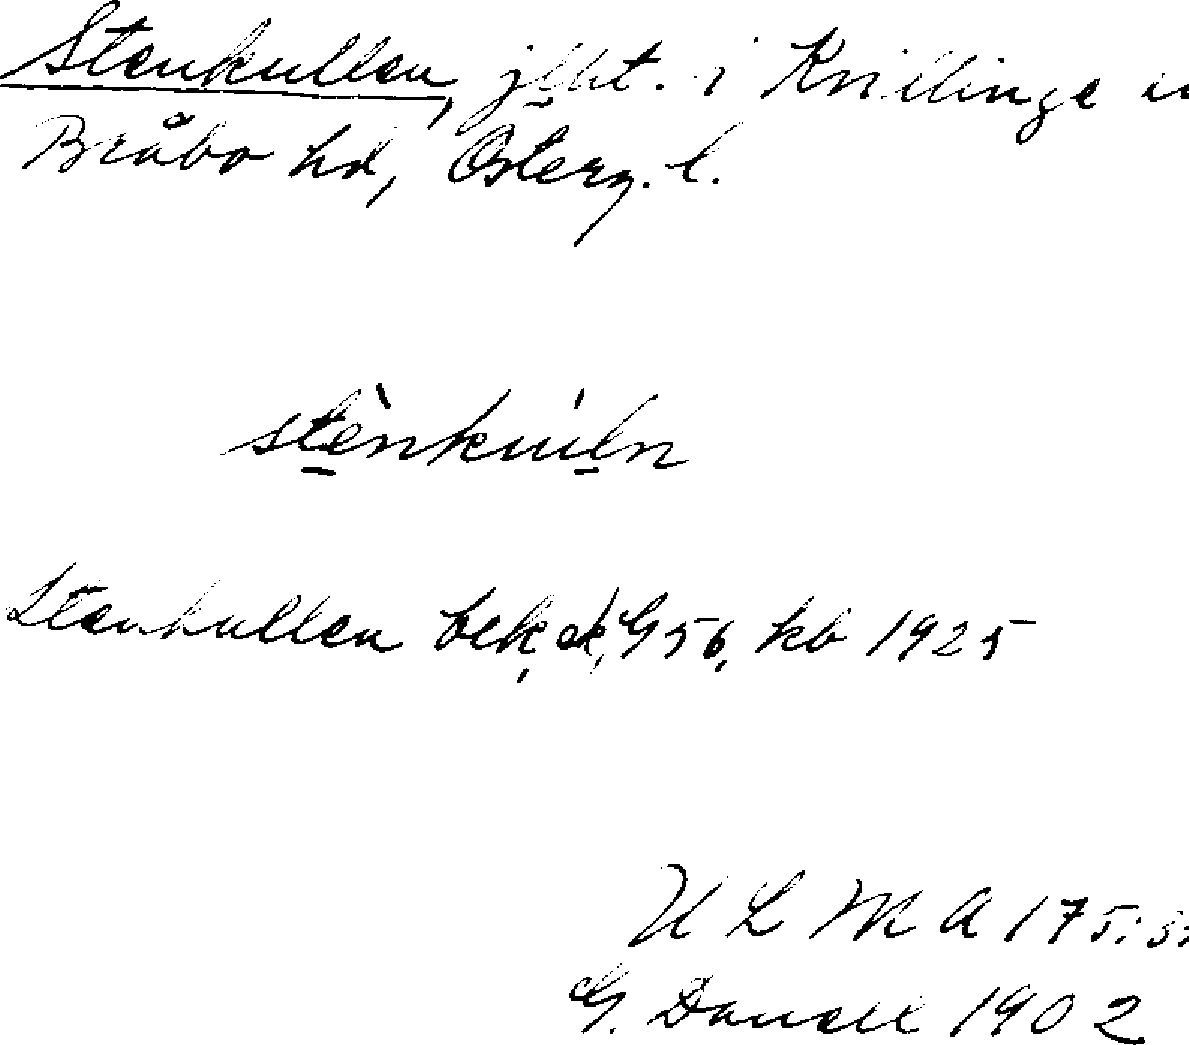 Stenkullen, jlht. i Kvillinge
Bråbo hd, Österg. l.
stènkuln
Stenkullen bek, ek, G 56, kb 1925
U L M A 175:
G. Danell 1902